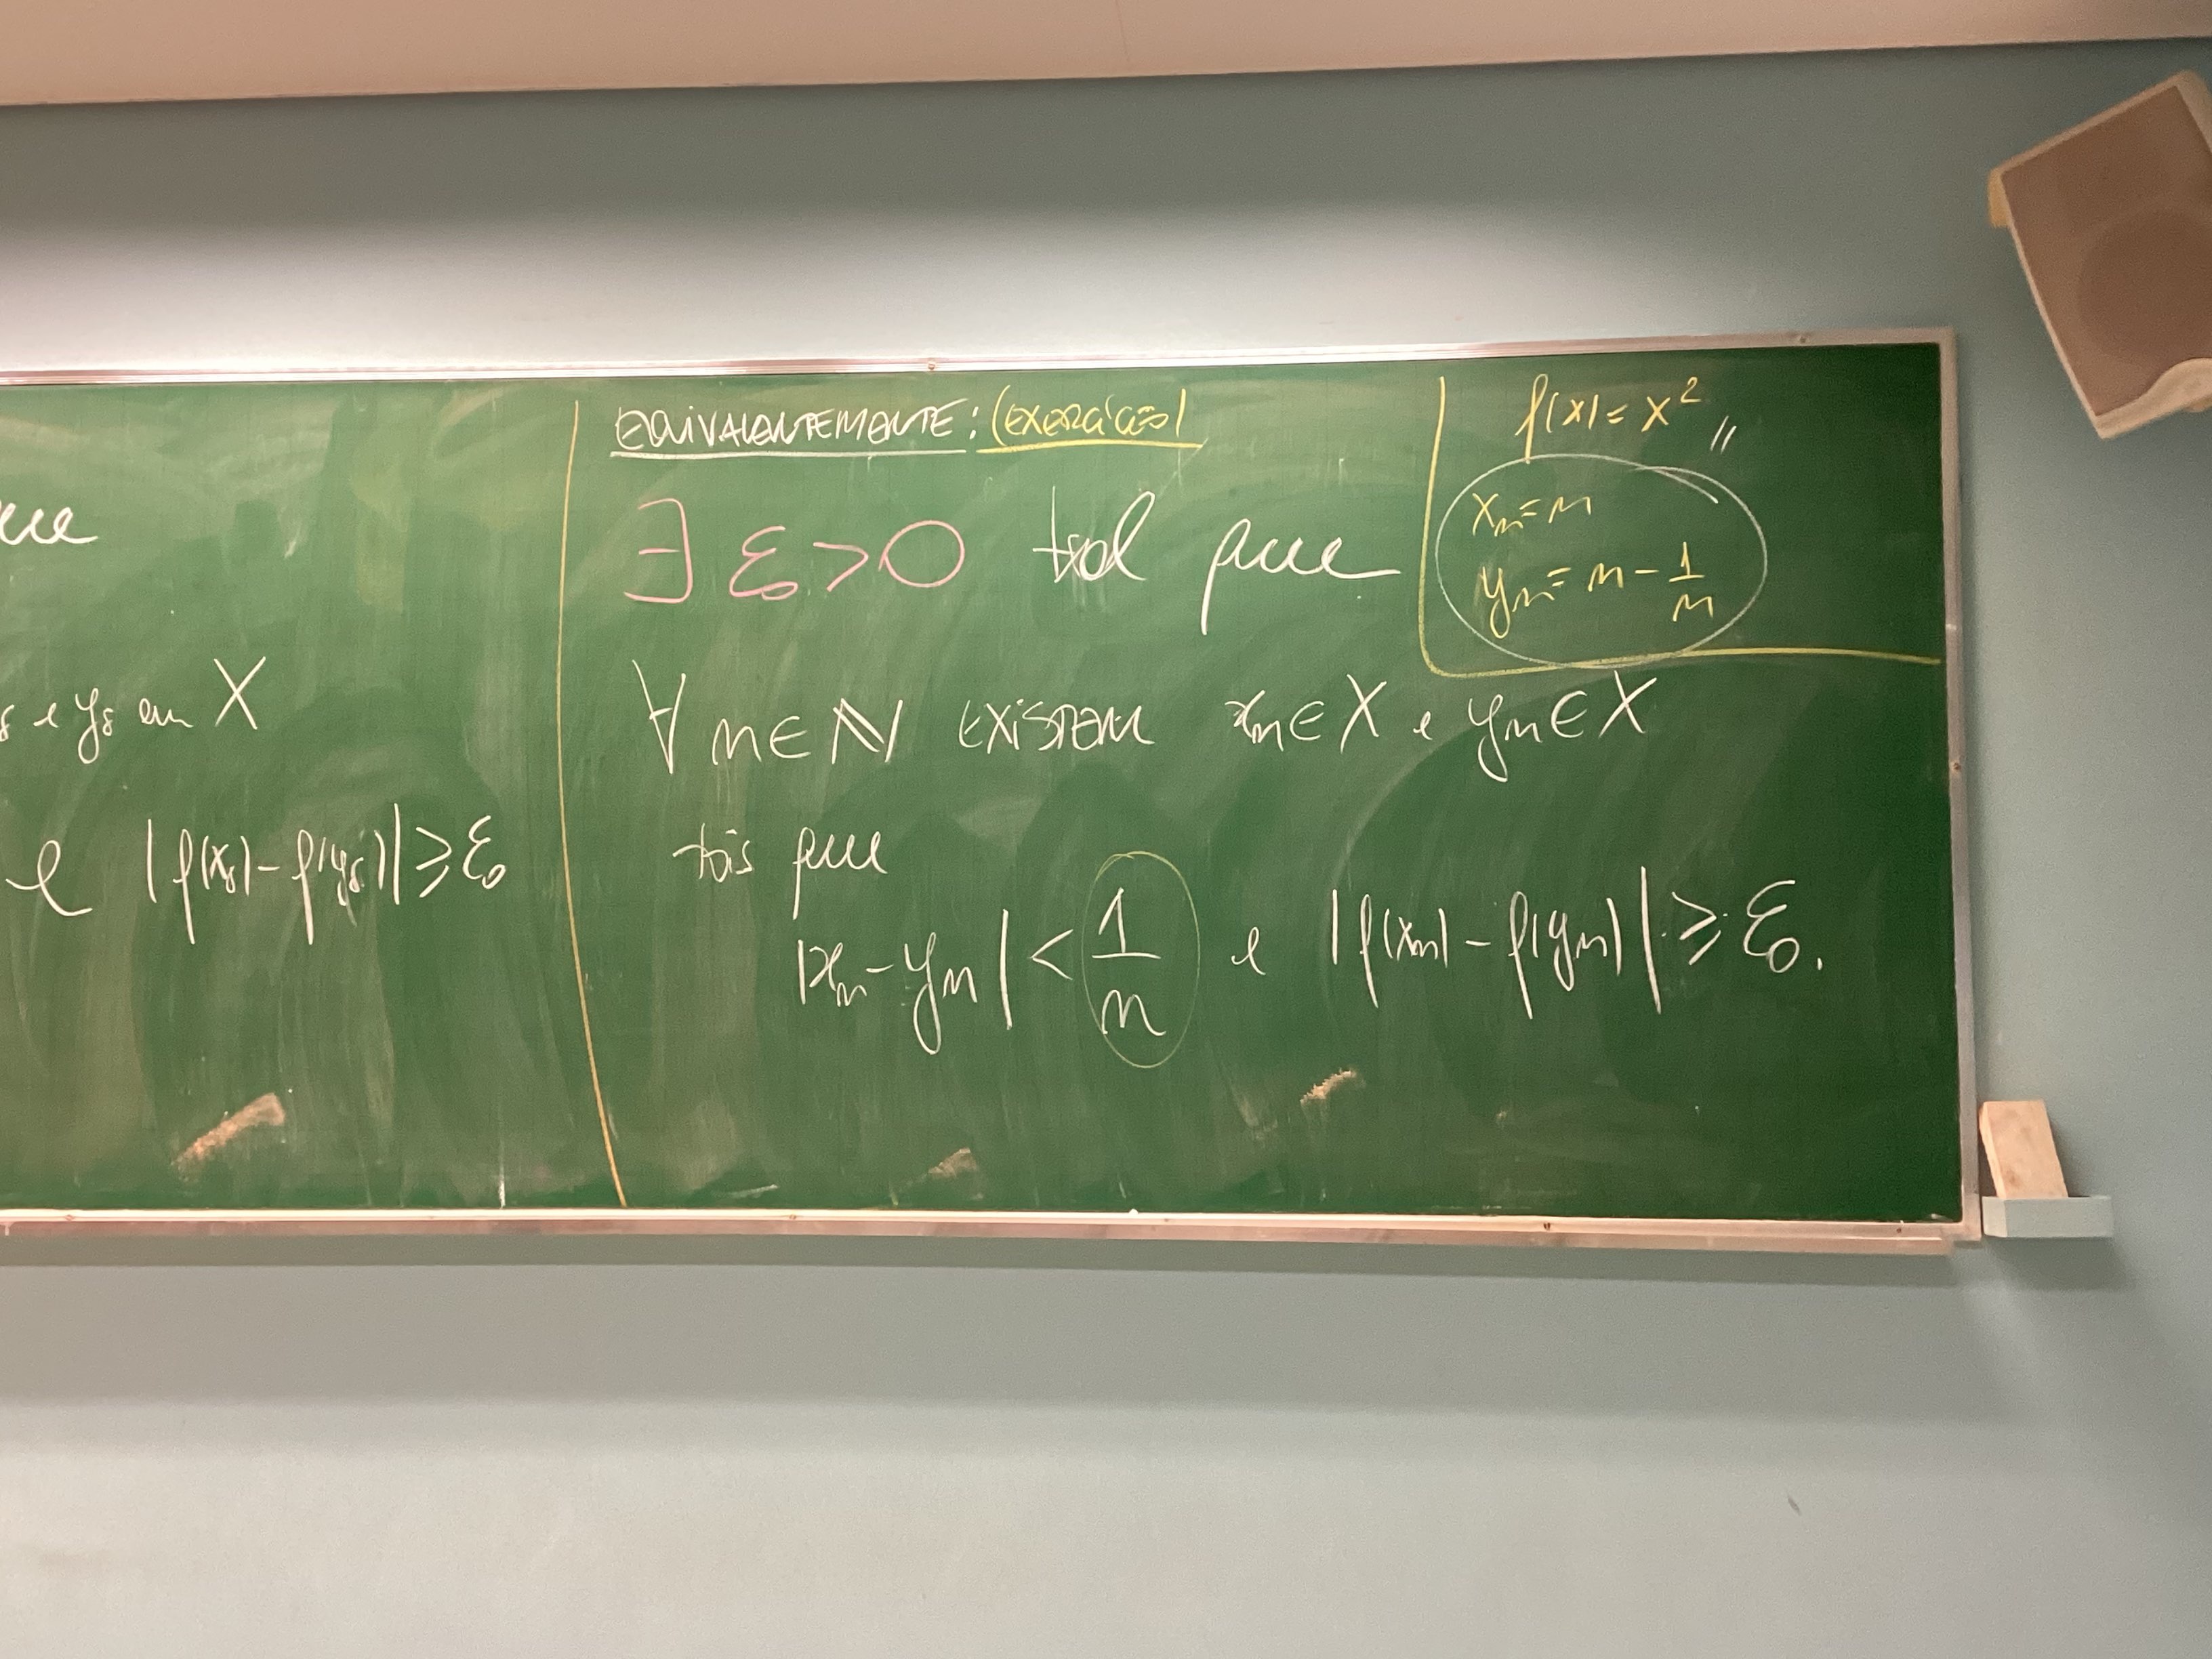 que
e y_δ em X
e |f(x_δ) - f(y_δ)| ≥ ε₀
EQUIVALENTEMENTE: (EXERCÍCIO)
∃ ε₀ > 0 tal que
∀ n ∈ ℕ EXISTEM x_n ∈ X e y_n ∈ X
tais que
|x_n - y_n| < 1/n e |f(x_n) - f(y_n)| ≥ ε₀.
f(x) = x² //
x_n = n
y_n = n - 1/n